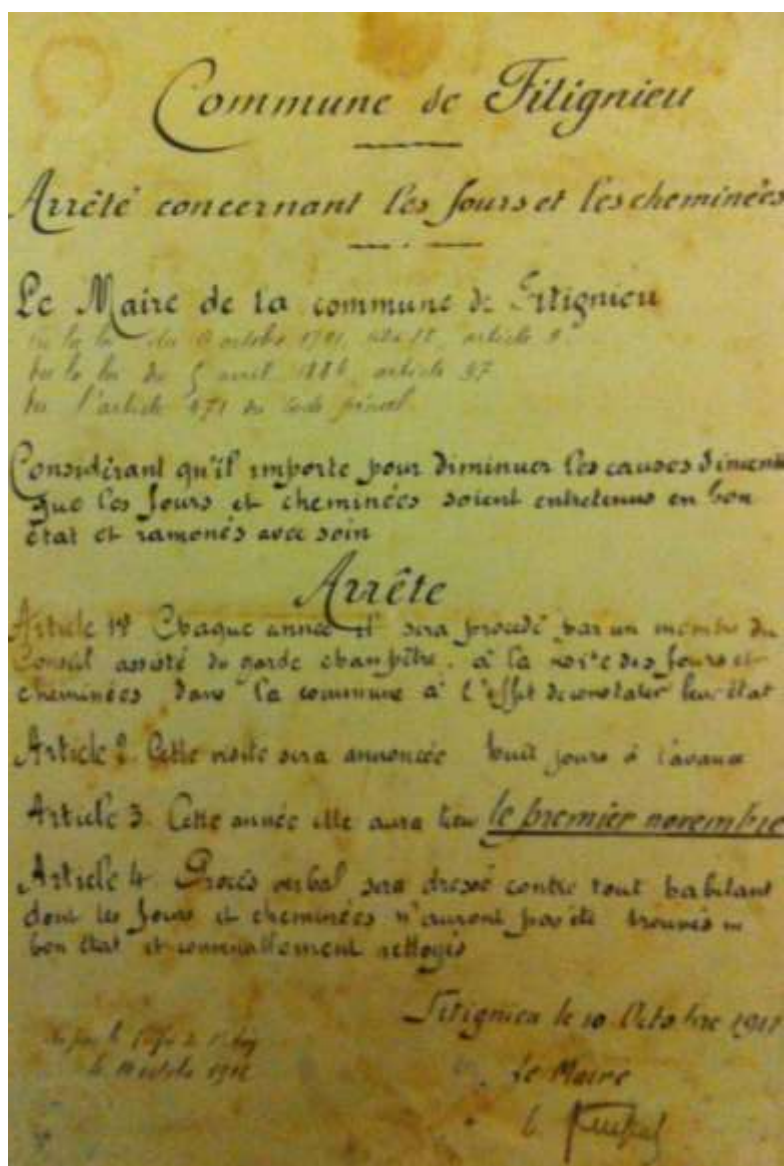 Commune de Fitignieu
Arrêté concernant les fours et les cheminées
Le Maire de la commune de Fitignieu
la loi du octobre 1791, article 9.
la loi du 5 avril 1884, article 97
l'article 471 du Code pénal
Considérant qu'il importe pour diminuer les causes d'incendie
que les fours et cheminées soient entretenus en bon
état et ramonés avec soin
Arrête
Article 1er Chaque année il sera procédé par un membre du
Conseil assisté du garde champêtre, à la visite des fours et
cheminées dans la commune à l'effet de constater leur état
Article 2. Cette visite sera annoncée huit jours à l'avance
Article 3. Cette année elle aura lieu le premier novembre
Article 4. Procès verbal sera dressé contre tout habitant
dont les fours et cheminées n'auront pas été trouvés en
bon état et convenablement nettoyés
Fitignieu le 10 Octobre
le octobre
Le Maire